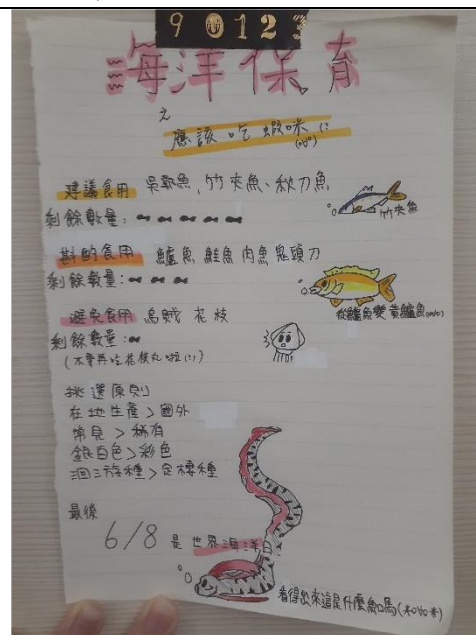 90123
海洋保育
之
應該吃蝦咪
建議食用 吳郭魚、竹夾魚、秋刀魚
竹夾魚
剩餘數量:
斟酌食用 鱸魚 鮭魚 肉魚 鬼頭刀
剩餘數量:
從鱸魚變黃鱸魚
避免食用 烏賊 花枝
剩餘數量:
(不要再吃花枝丸啦
挑選原則
在地生產>國外
常見>稀有
銀白色>彩色
洄游種>定棲種
最後
6/8 是世界海洋日
看得出來這是什麼魚嗎